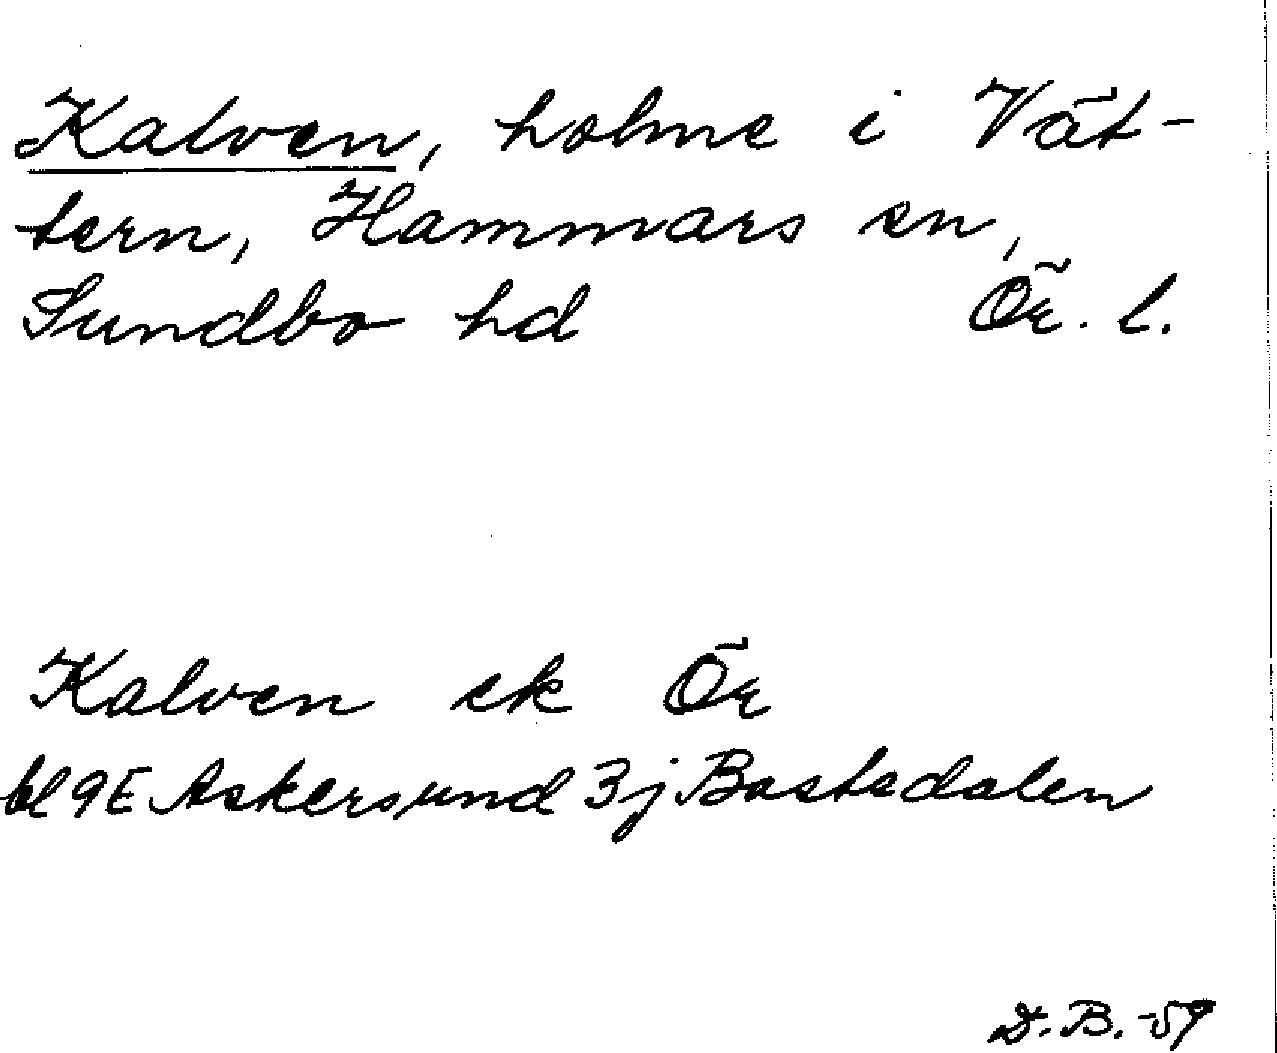 Kalven, holme i Vät-
tern, Hammars sn,
Sundbo hd Ör. l.
Kalven ek Ör
bl 9E Askersund 3j Bastedalen
D.B. -59